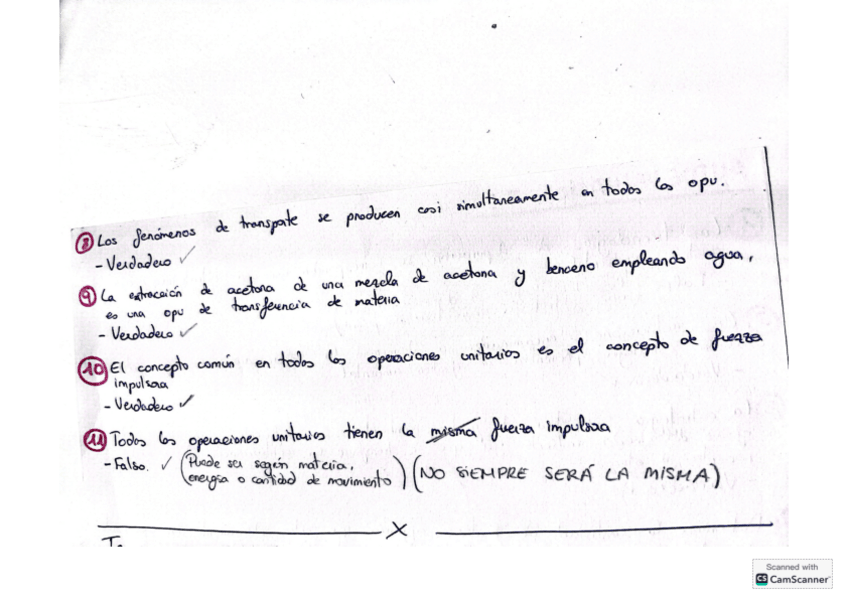 ⑧ Los fenómenos de transporte se producen casi simultaneamente en todos los opu.
- Verdadero ✓
⑨ La extracción de acetona de una mezcla de acetona y benceno empleando agua,
es una opu de transferencia de materia
- Verdadero ✓
⑩ El concepto común en todos los operaciones unitarios es el concepto de fuerza
impulsora
- Verdadero ✓
⑪ Todos los operaciones unitarios tienen la misma fuerza impulsora
- Falso. ✓ (Puede ser según materia,
energía o cantidad de movimiento) (NO SIEMPRE SERÁ LA MISMA)
X
Scanned with
CS CamScanner